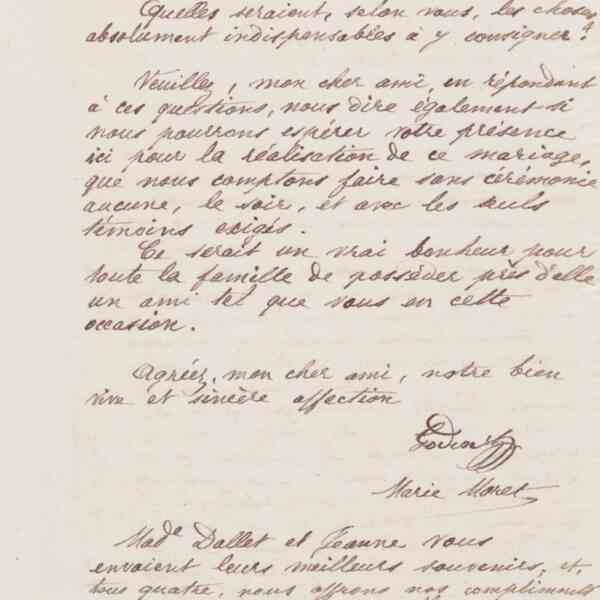 Quelles seraient, selon vous, les choses
absolument indispensables à y consigner ?
Veuillez, mon cher ami, en répondant
à ces questions, nous dire également si
nous pourrons espérer votre présence
ici pour la réalisation de ce mariage,
que nous comptons faire sans cérémonie
aucune, le soir, et avec les seuls
témoins exigés.
Ce serait un vrai bonheur pour
toute la famille de posséder près d'elle
un ami tel que vous en cette
occasion.
Agréez, mon cher ami, notre bien
vive et sincère affection
Godin
Marie Moret
Mad^e Dallet et Jeanne vous
envoient leurs meilleurs souvenirs, et,
tous quatre, nous offrons nos compliments